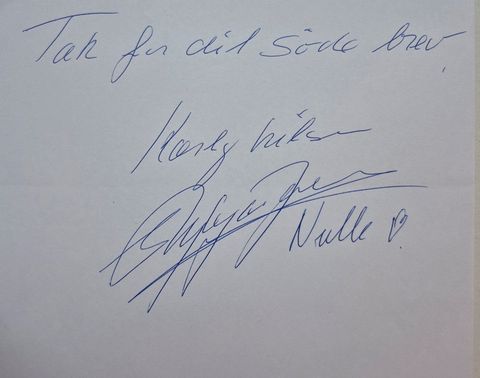 Tak for dit söde brev.
Kærlig hilsen
Nulle ♡